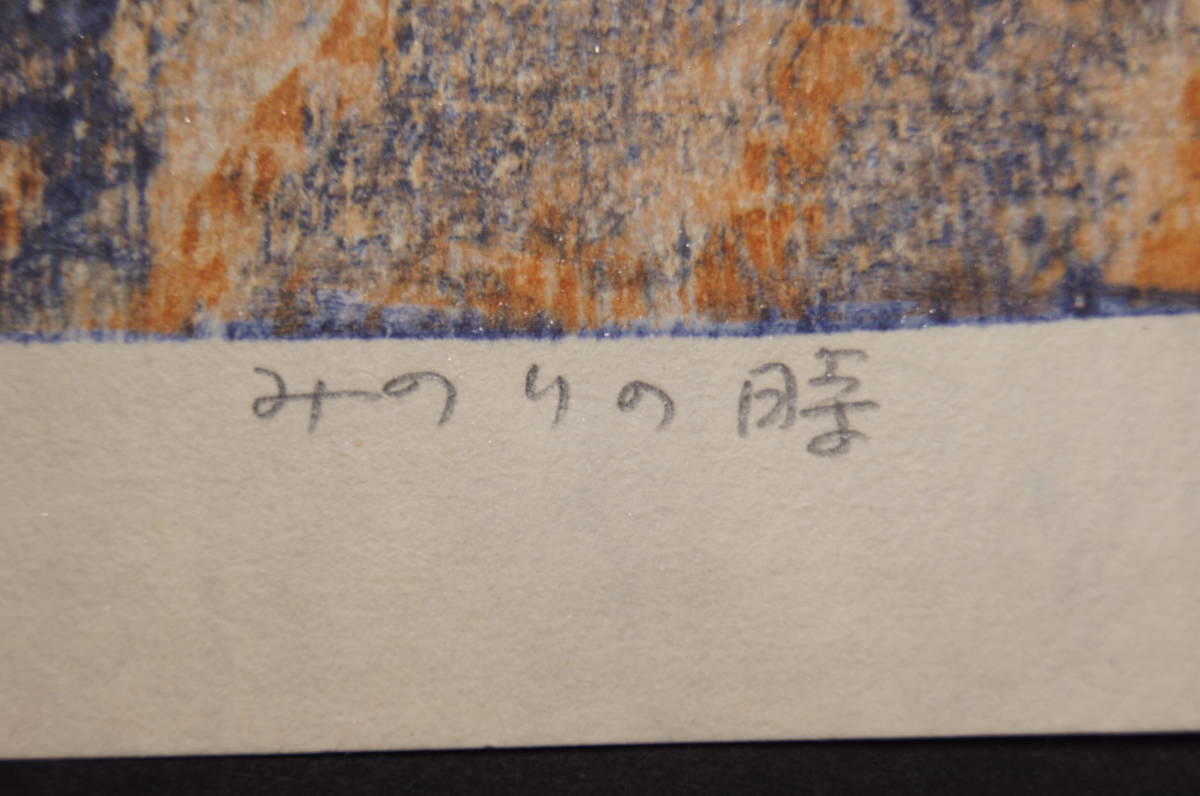 みのりの時